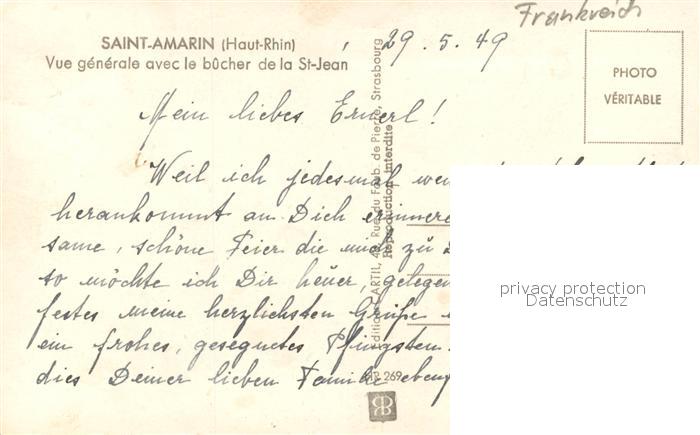 Frankreich
SAINT-AMARIN (Haut-Rhin)
Vue générale avec le bûcher de la St-Jean
29. 5. 49
PHOTO
VÉRITABLE
Mein liebes Ernerl!
Weil ich jedesmal
herankommt an Dich erinnere
same, schöne Feier die mich zu
so möchte ich Dir heuer, gelegen
festes meine herzlichsten Grüße
ein frohes, gesegnetes Pfingsten
dies Deiner lieben Familie
Rue du Faub. de Pierre, Strasbourg
Reproduction interdite
privacy protection
Datenschutz